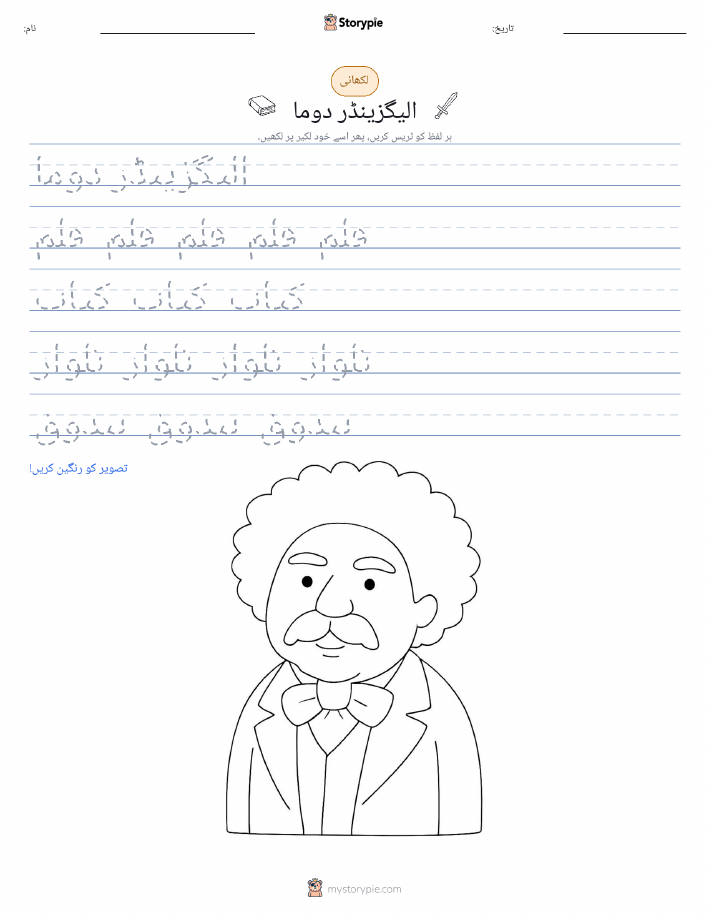 نام:
Storypie
تاریخ:
لکھائی
الیگزینڈر دوما
ہر لفظ کو ٹریس کریں، پھر اسے خود لکیر پر لکھیں۔
الیگزینڈر دوما
قلم قلم قلم قلم قلم
کتاب کتاب کتاب
تلوار تلوار تلوار تلوار
بندوق بندوق بندوق
تصویر کو رنگین کریں!
mystorypie.com